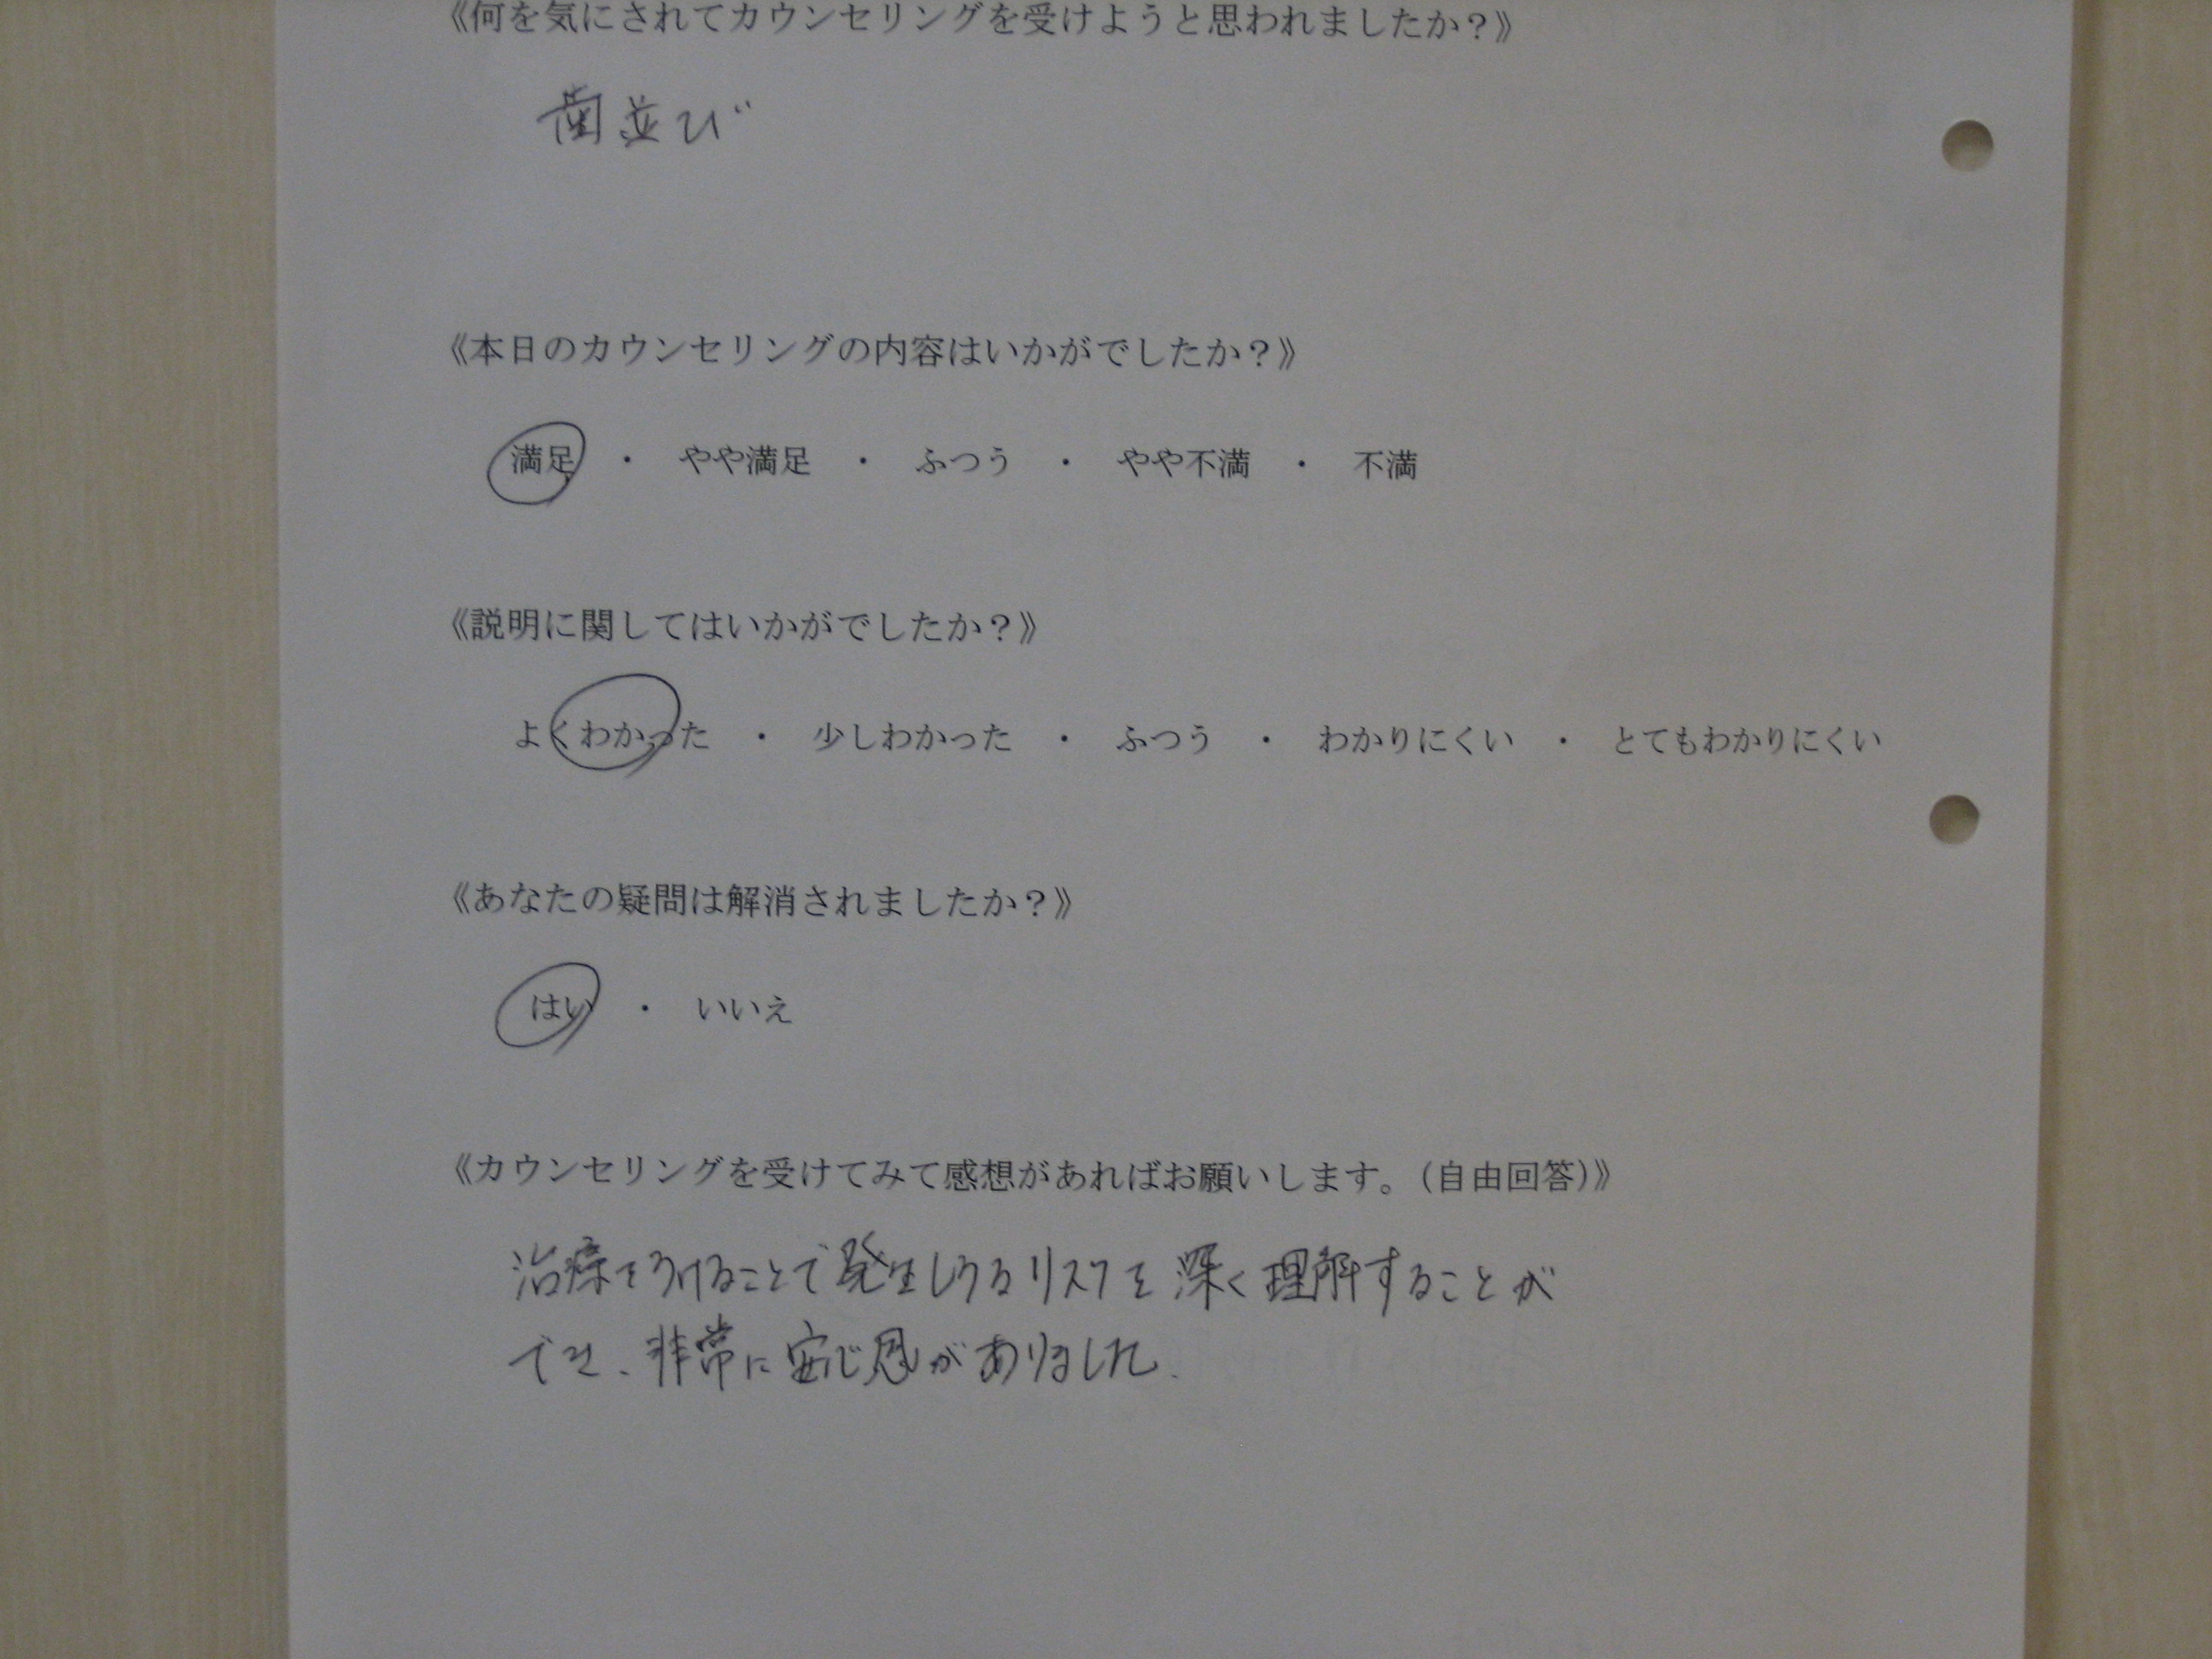 《何を気にされてカウンセリングを受けようと思われましたか?》
歯並び
《本日のカウンセリングの内容はいかがでしたか?》
満足 ・ やや満足 ・ ふつう ・ やや不満 ・ 不満
《説明に関してはいかがでしたか?》
よくわかった ・ 少しわかった ・ ふつう ・ わかりにくい ・ とてもわかりにくい
《あなたの疑問は解消されましたか?》
はい ・ いいえ
《カウンセリングを受けてみて感想があればお願いします。(自由回答)》
治療をうけることで発生しうるリスクを深く理解することが
でき、非常に安心感がありました.